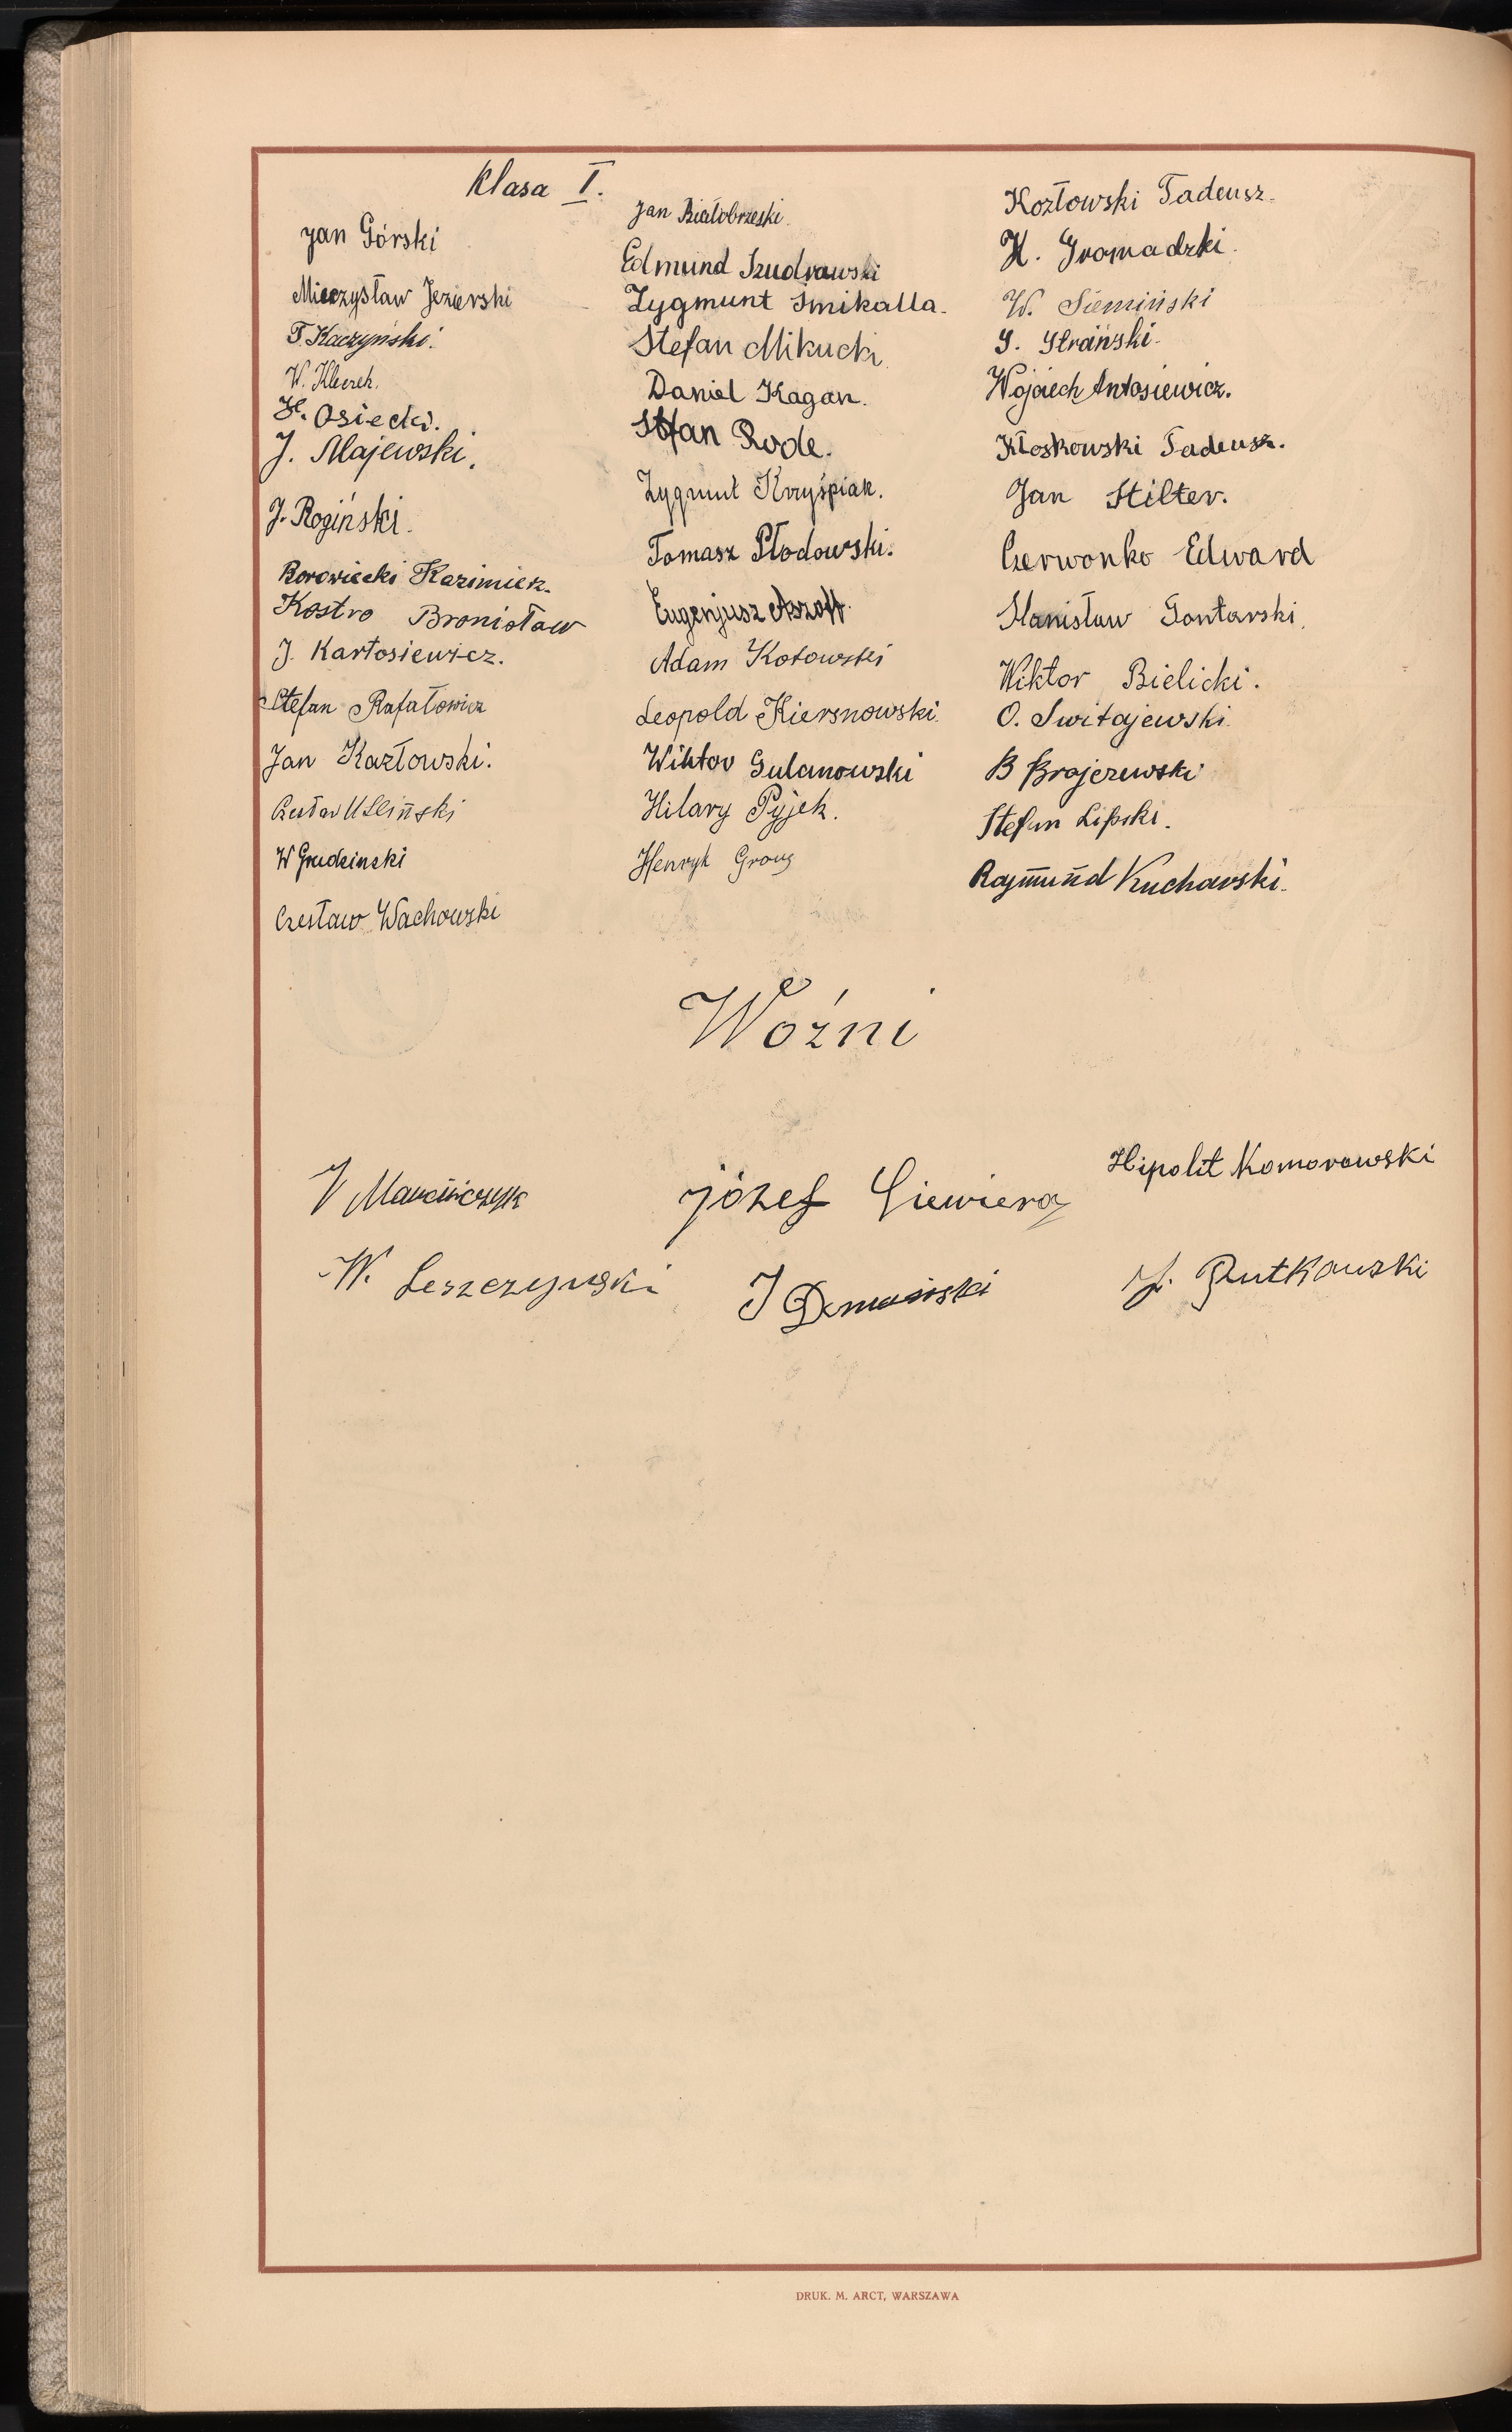 Klasa I.
Jan Górski
Mieczysław Jezierski
T. Kaczyński.
W. Klucek.
H. Osiecki.
J. Majewski.
J. Rogiński.
Borowiecki Kazimierz.
Kostro Bronisław
J. Kartosiewicz.
Stefan Rafałowicz
Jan Kozłowski.
Czesław Usliński
W Grudzinski
Czesław Wachowski
Jan Białobrzeski.
Edmund Szudrawski
Zygmunt Smikalla.
Stefan Mikucki
Daniel Kagan.
Stefan Rode.
Zygmunt Krzyśpiak.
Tomasz Płodowski.
Eugenjusz
Adam Kotowski
Leopold Kiersnowski.
Wiktor Gulanowski
Hilary Pyjek.
Henryk
Kozłowski Tadeusz.
H. Gromadzki.
W. Siemiński
S. Strański.
Wojciech Antosiewicz.
Kłoskowski Tadeusz.
Jan Stilter.
Czerwonko Edward
Stanisław Gontarski.
Wiktor Bielicki.
O. Switajewski.
B Brajczewski
Stefan Lipski.
Rajmund Kucharski.
Woźni
J Marcińczyk
Józef Siewiera
Hipolit Komorowski
W. Leszczynski
J Domański
J. Rutkowski
DRUK. M. ARCT, WARSZAWA